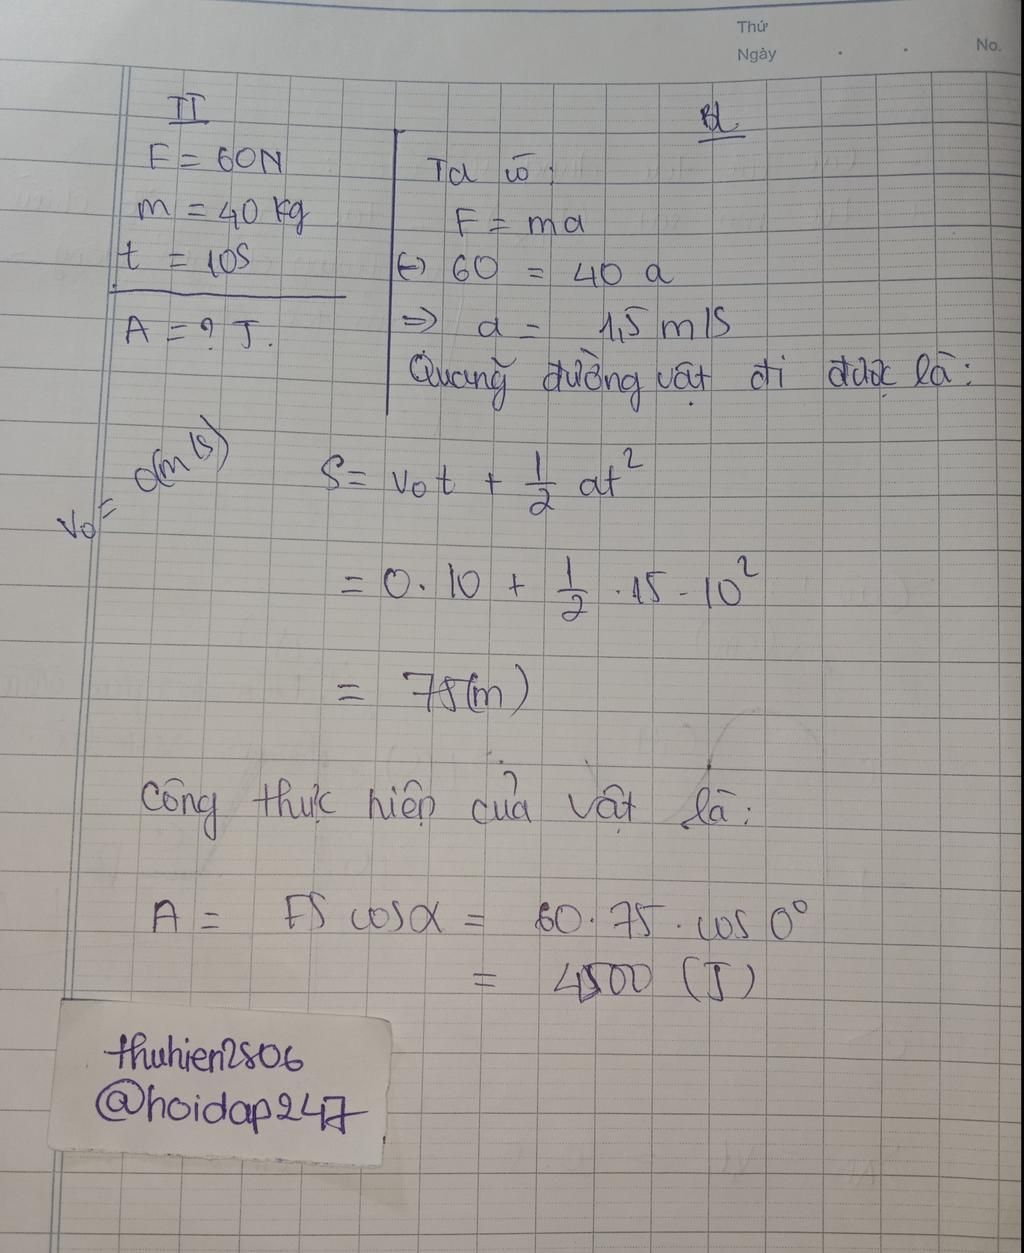 Thứ
Ngày . . No.
II
F = 60N
m = 40 kg
t = 10s
A = ? J.
Bl
Ta có:
F = ma
<-> 60 = 40 a
=> a = 1,5 m/s
Quãng đường vật đi được là:
v₀ = 0(m/s)
S = v₀t + 1/2 at²
= 0.10 + 1/2 . 15 . 10²
= 75(m)
Công thực hiện của vật là:
A = FS cosα = 60.75 . cos 0°
= 4500 (J)
thuhien2806
@hoidap247